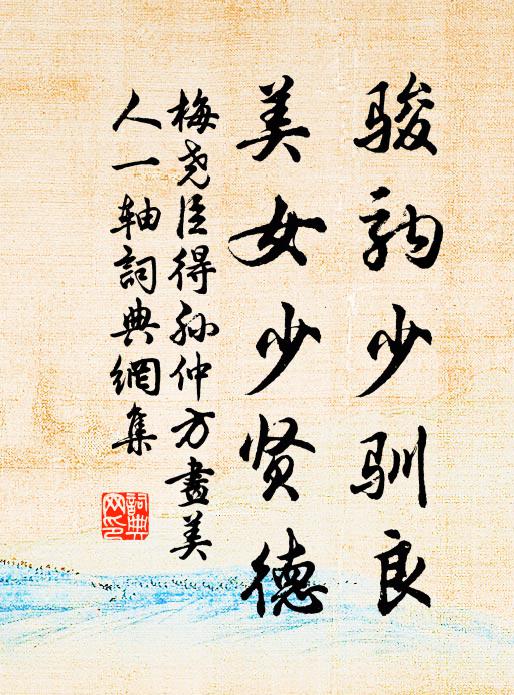 骏驹少驯良
美女少贤德
梅尧臣得孙仲方畫美
人一轴詞典網集
詞典
网印